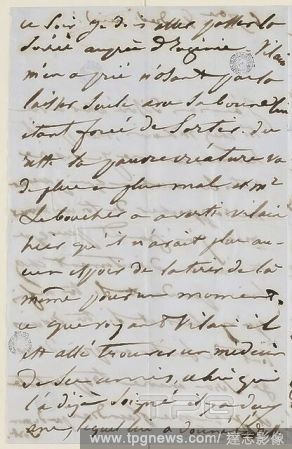 ce soir je dois aller passer la
soirée auprès d'Eugénie Vilain
m'en a prié n'osant pas la
laisser seule avec sa bonne lui
étant forcé de sortir. du
reste la pauvre créature va
de plus en plus mal et mr
Leboucher a averti Vilain
hier qu'il n'avait plus au-
cun espoir de la tirer de là
même pour un moment.
ce que voyant Vilain il
est allé trouver un médecin
de ses amis, celui que
l'a déjà soigné il y a
lequel lui a donné
TPG
www.tpgnews.com / 達志影像